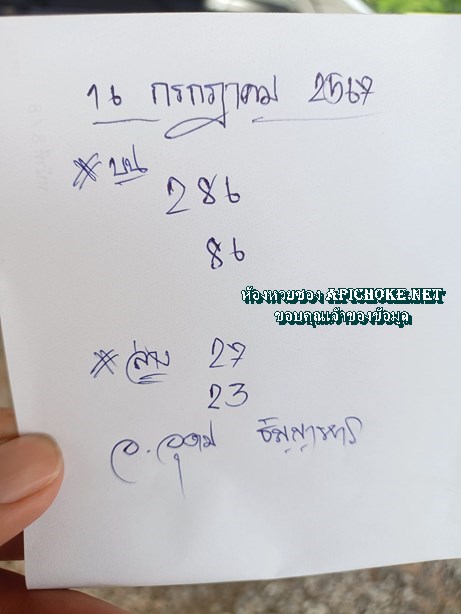 16 กรกฎาคม 2567
* บน
286
86
ห้องหวยซอง APICHOKE.NET
ขอบคุณเจ้าของข้อมูล
* ล่าง 27
23
อ. อุดม ธัญญาหาร